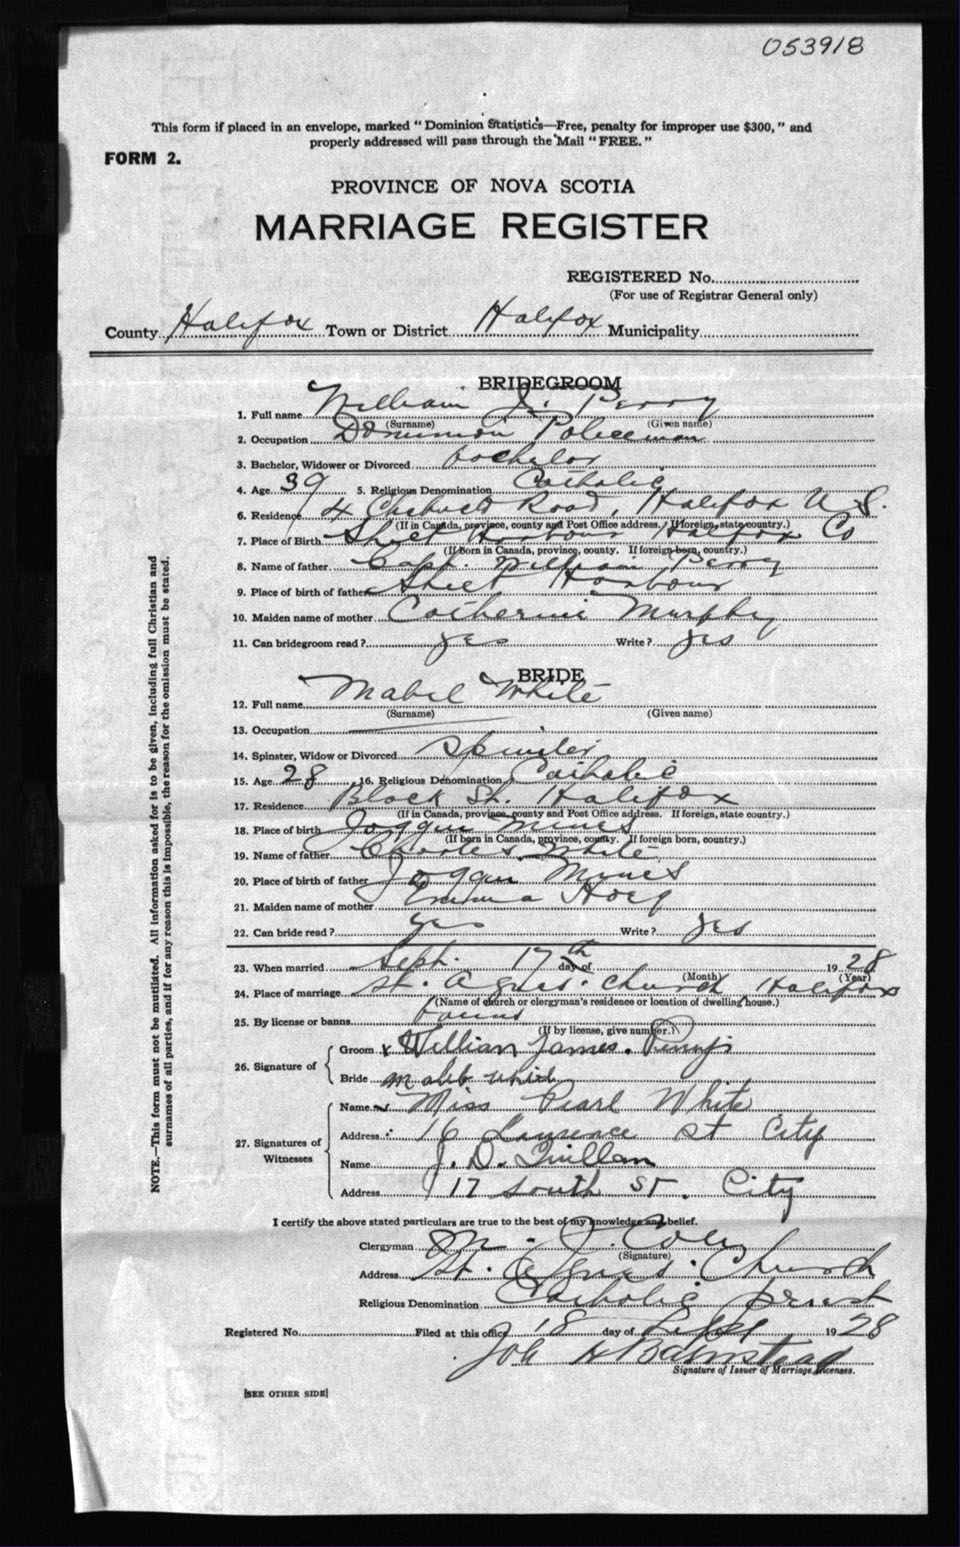 053918
This form if placed in an envelope, marked "Dominion Statistics—Free, penalty for improper use $300," and
properly addressed will pass through the Mail "FREE."
FORM 2.
PROVINCE OF NOVA SCOTIA
MARRIAGE REGISTER
REGISTERED No.
(For use of Registrar General only)
County Halifax Town or District Halifax Municipality
BRIDEGROOM
1. Full name William J. Perry
(Surname) (Given name)
2. Occupation Dominion Policeman
3. Bachelor, Widower or Divorced bachelor
4. Age 39 5. Religious Denomination Catholic
6. Residence 4 Road, Halifax N. S.
(If in Canada, province, county and Post Office address. If foreign, state country.)
7. Place of Birth Sheet Harbour Halifax Co
(If Born in Canada, province, county. If foreign born, country.)
8. Name of father Capt. William Perry
9. Place of birth of father Sheet Harbour
10. Maiden name of mother Catherine Murphy
11. Can bridegroom read? yes Write? yes
BRIDE
12. Full name Mabel White
(Surname) (Given name)
13. Occupation
14. Spinster, Widow or Divorced Spinster
15. Age 28 16. Religious Denomination Catholic
17. Residence Block St. Halifax
(If in Canada, province, county and Post Office address. If foreign, state country.)
18. Place of birth Joggin Mines
(If born in Canada, province, county. If foreign born, country.)
19. Name of father Charles White
20. Place of birth of father Joggin Mines
21. Maiden name of mother Emma Hoey
22. Can bride read? yes Write? yes
23. When married Sept. 17th day of 1928
(Month) (Year)
24. Place of marriage St. Agnes Church Halifax
(Name of church or clergyman's residence or location of dwelling house.)
25. By license or banns banns
(If by license, give number.)
26. Signature of
Groom x William James.
Bride
27. Signatures of
Witnesses
Name Miss Pearl White
Address 16 Lawrence St City
Name J. D. Quillan
Address 17 South St. City
I certify the above stated particulars are true to the best of my knowledge and belief.
Clergyman M. J.
(Signature)
Address St. Agnes Church
Religious Denomination Catholic priest
Registered No. Filed at this office 18 day of Sept 1928
H Balmstead
Signature of Issuer of Marriage Licenses.
[SEE OTHER SIDE]
NOTE.—This form must not be mutilated. All information asked for is to be given, including full Christian and
surnames of all parties, and if for any reason this is impossible, the reason for the omission must be stated.